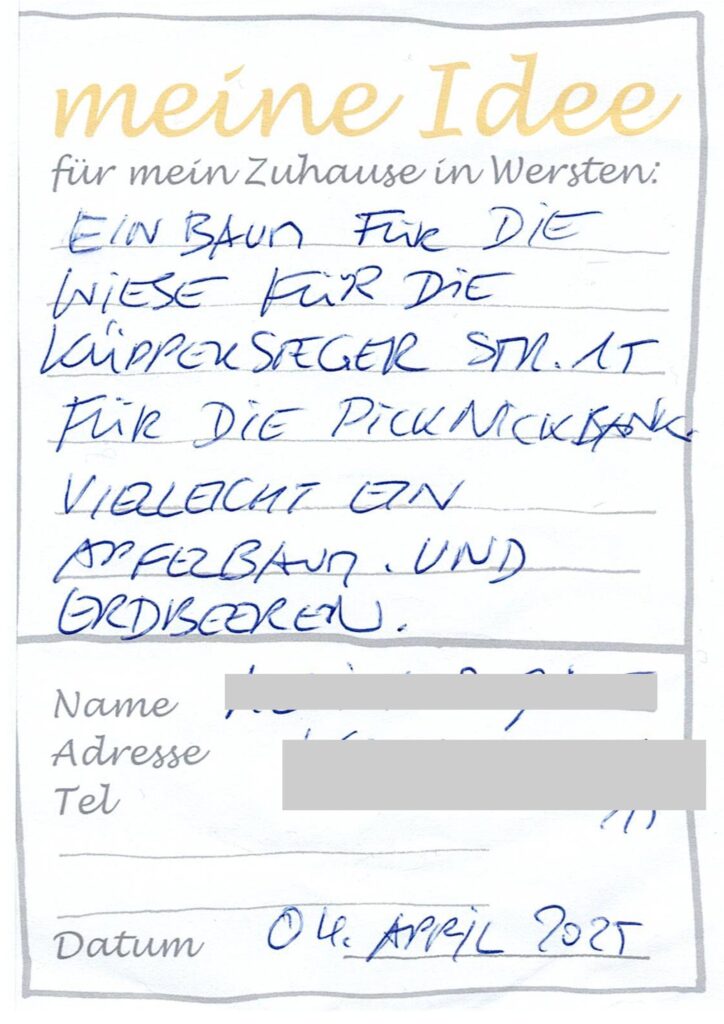 meine Idee
für mein Zuhause in Wersten:
EIN BAUM FÜR DIE
WIESE FÜR DIE
KÜPPERSTEGER STR. 15
FÜR DIE PICKNICKBANK.
VIELLEICHT EIN
APFELBAUM. UND
ERDBEEREN.
Name
Adresse
Tel
Datum 04. APRIL 2025